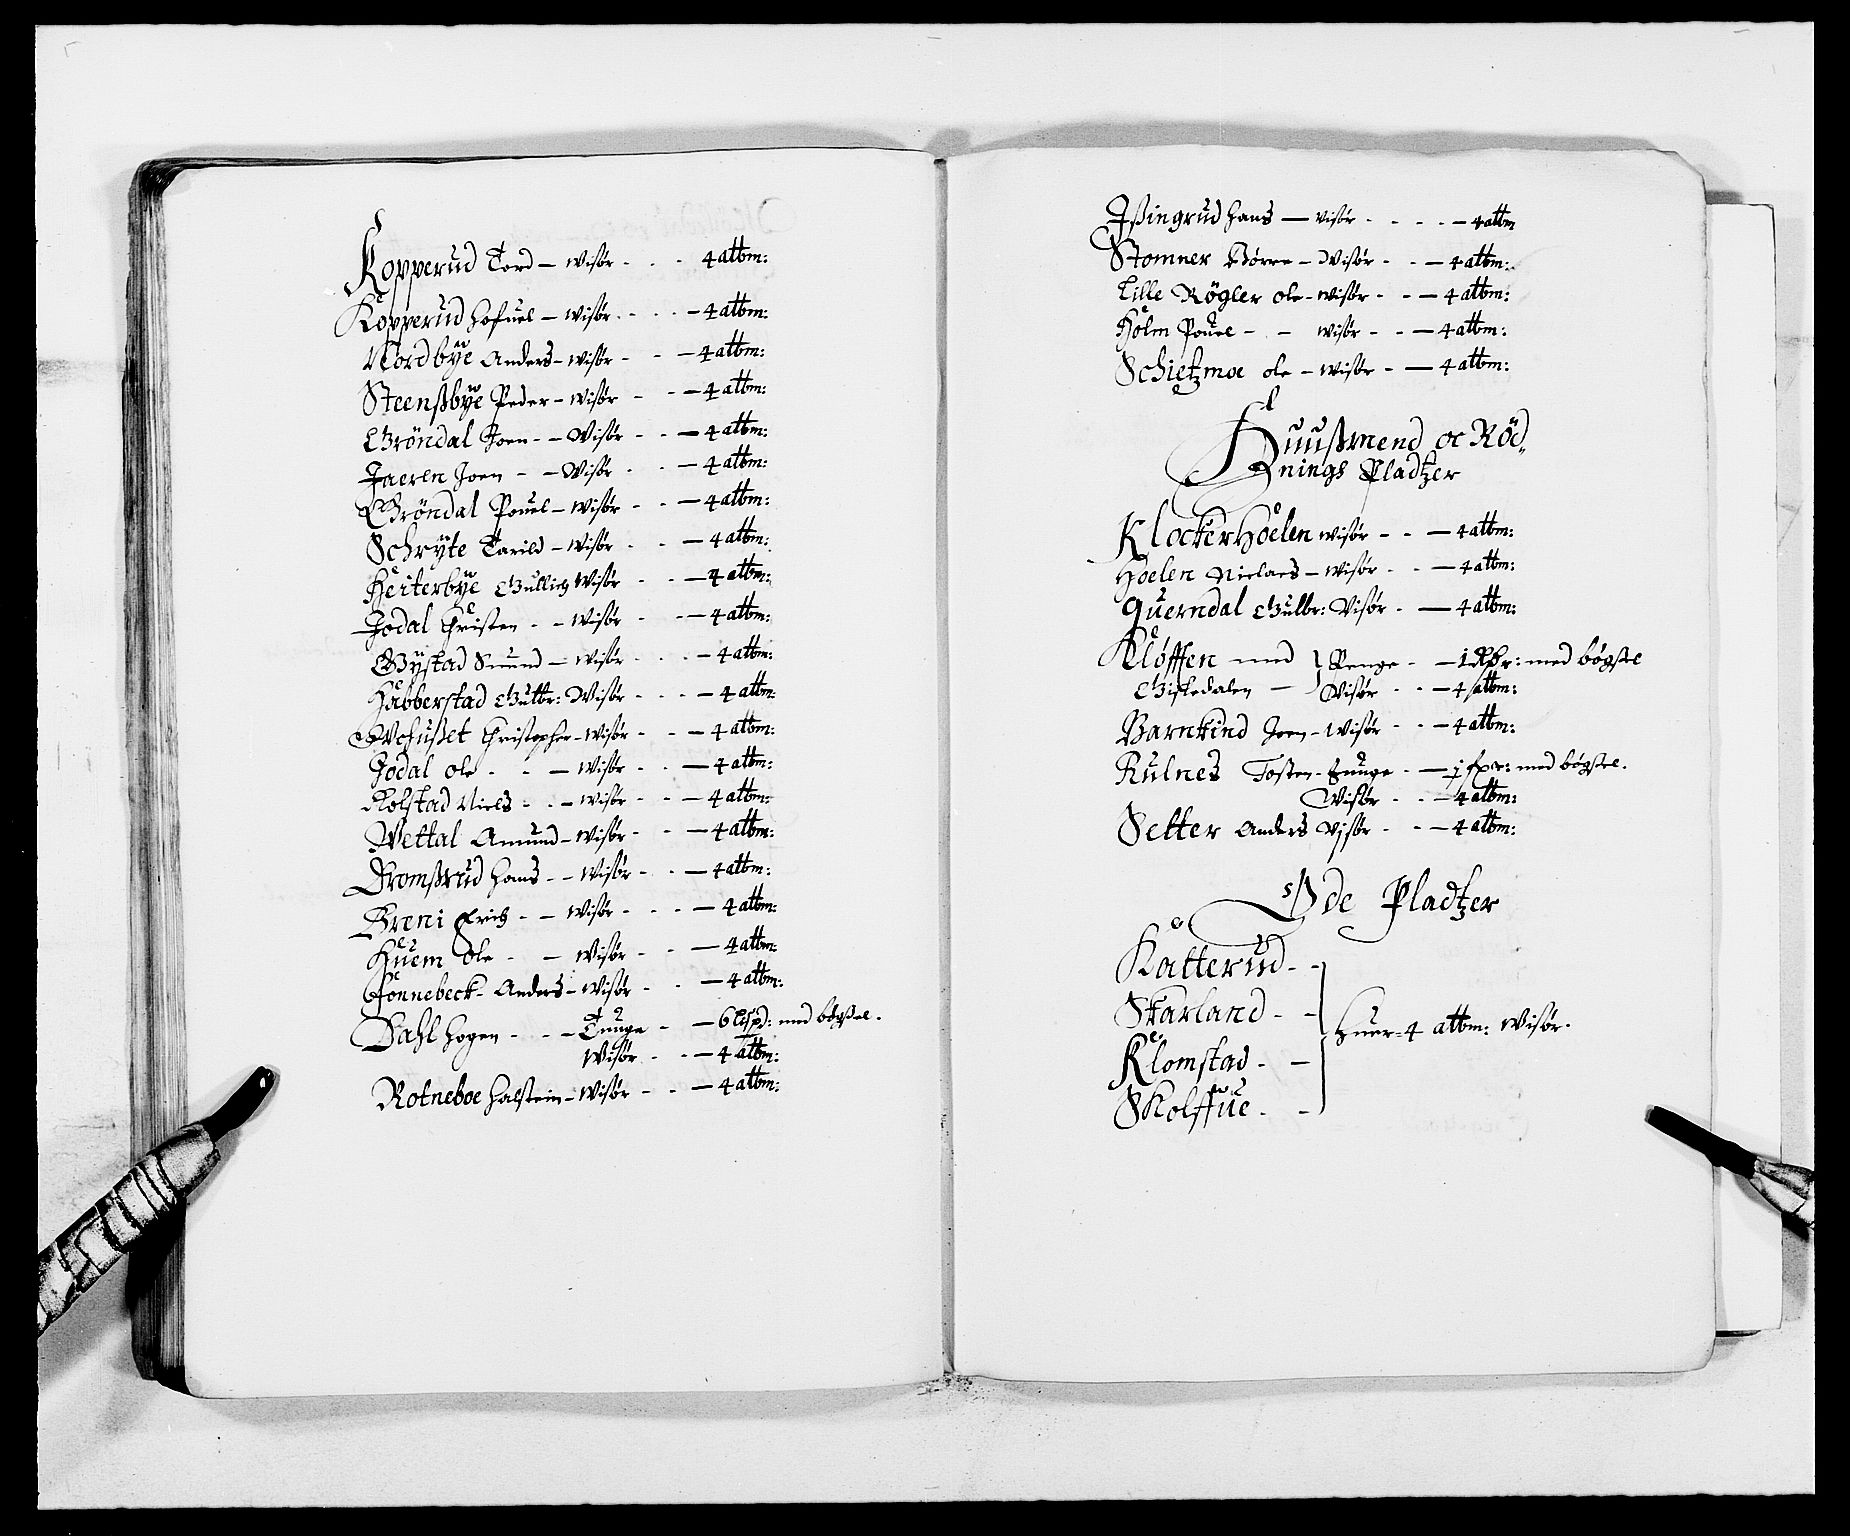 Kopperud Tord – Wisør - - - 4 attm:
Kopperud Hofuel – Wisør - - - – 4 attm:
Nordbÿe Anders – Wisør - - – 4 attm:
Steenßbÿe Peder – Wisør - - – 4 attm:
Gröndal Joen - – Wisør - - – 4 attm:
Jaeren Joen - – Wisør - - – 4 attm:
Gröndal Pouel – Wisør - - – 4 attm:
Schrÿte Tarild – Wisør - - – 4 attm:
Heiterbÿe Gullich Wisør - - – 4 attm:
Jodal Christen - – Wisør - – 4 attm:
Gÿstad Suend – Wisør - - - – 4 attm:
Habberstad Gulbr: Wisør - - - – 4 attm:
Christopher – Wisør - - – 4 attm:
Jodal Ole - - – Wisør - - – 4 attm:
Kolstad Niels - - – Wisør - - – 4 attm:
Wettal Amund – Wisør - - – 4 attm:
Dromßrud Hans - – Wisør - - – 4 attm:
Breni Erich - – Wisør - - - – 4 attm:
Huem Ole - – Wisør - - – 4 attm:
Fonnebeck - Anders – Wisør - - – 4 attm:
Dahl Hogen - - - – Tunge - – 6 lispd: med bøgsel.
Wisør - - – 4 attm:
Rotneboe Halstein – Wisør - - – 4 attm:
Ißingrud Hans – Wisør - - - - – 4 attm
Stomner Børre – Wisør - - – 4 attm:
Lille Røgler Ole – Wisør - - – 4 attm:
Holm Pouel - - Wisør - - – 4 attm:
Schietzmoe Ole – Wisør - – 4 attm:
Huußmend oc Röd„
nings Pladtzer
Klocker Hoelen Wisør - - – 4 attm:
Hoelen Nielaes – Wisør - - – 4 attm:
Querndal Gulbr: Wisør - – 4 attm:
Kløffen med } Penge - – 1 Rdr: med bögsel
Gistedalen – } Wisør - - – 4 attm:
Barnkind Joen – Wisør - - – 4 attm:
Rulnes Tosten - Tunge - – med bøgsel.
Wisør - - – 4 attm:
Setter Anders Wisør - - – 4 attm:
Øde Pladtzer
Katterud - -
Skarland - -
Huer - 4 attm: Wisør.
Klomstad - –
Skolffue - -